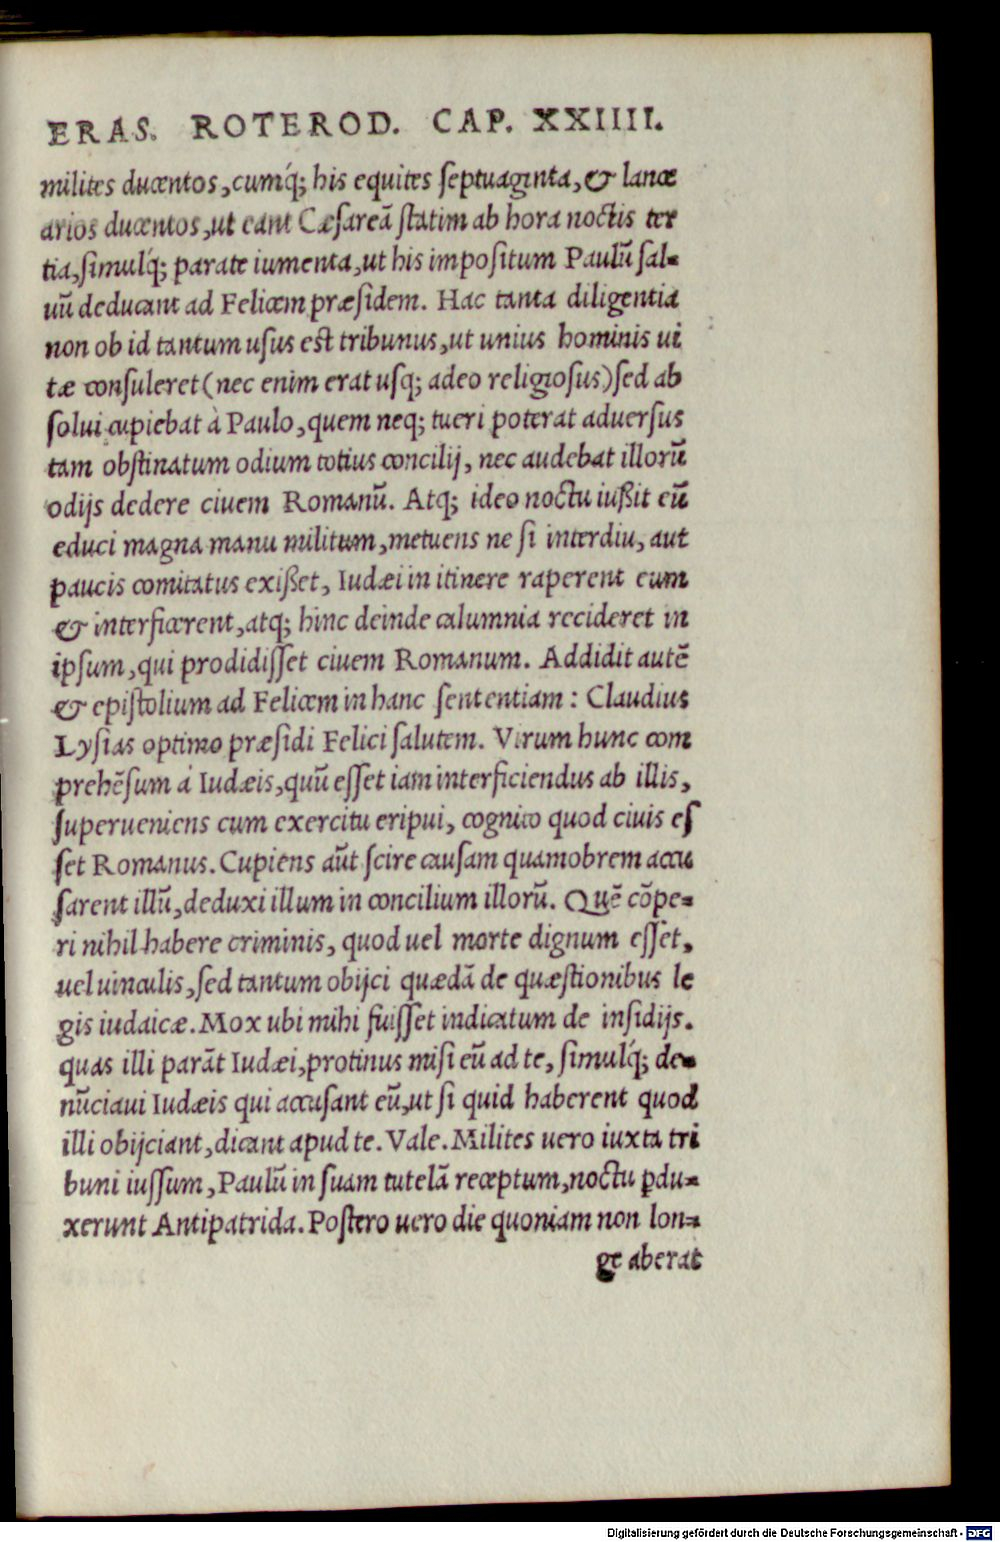 ERAS. ROTEROD. CAP. XXIIII.
milites ducentos, cumq́; his equites ſeptuaginta, & lance
arios ducentos, ut eant Cæſareã ſtatim ab hora noctis ter
tia, ſimulq́; parate iumenta, ut his impoſitum Paulũ ſal-
uũ deducant ad Felicem præſidem. Hac tanta diligentia
non ob id tantum uſus eſt tribunus, ut unius hominis ui
tæ conſuleret (nec enim erat uſq; adeo religioſus) ſed ab
ſolui cupiebat à Paulo, quem neq; tueri poterat aduerſus
tam obſtinatum odium totius concilij, nec audebat illorũ
odijs dedere ciuem Romanũ. Atq; ideo noctu iußit eũ
educi magna manu militum, metuens ne ſi interdiu, aut
paucis comitatus exißet, Iudæi in itinere raperent eum
& interficerent, atq; hinc deinde calumnia recideret in
ipſum, qui prodidiſſet ciuem Romanum. Addidit autẽ
& epiſtolium ad Felicem in hanc ſententiam: Claudius
Lyſias optimo præſidi Felici ſalutem. Virum hunc com
prehẽſum á Iudæis, quũ eſſet iam interficiendus ab illis,
ſuperueniens cum exercitu eripui, cognito quod ciuis eſ
ſet Romanus. Cupiens aũt ſcire cauſam quamobrem accu
ſarent illũ, deduxi illum in concilium illorũ. Quẽ cõpe-
ri nihil habere criminis, quod uel morte dignum eſſet,
uel uinculis, ſed tantum obijci quædã de quæſtionibus le
gis iudaicæ. Mox ubi mihi fuiſſet indicatum de inſidijs.
quas illi parãt Iudæi, protinus miſi eũ ad te, ſimulq́; de-
nũciaui Iudæis qui accuſant eũ, ut ſi quid haberent quod
illi obijciant, dicant apud te. Vale. Milites uero iuxta tri
buni iuſſum, Paulũ in ſuam tutelã receptum, noctu ꝑdu-
xerunt Antipatrida. Poſtero uero die quoniam non lon-
ge aberat
Digitalisierung gefördert durch die Deutsche Forschungsgemeinschaft - DFG